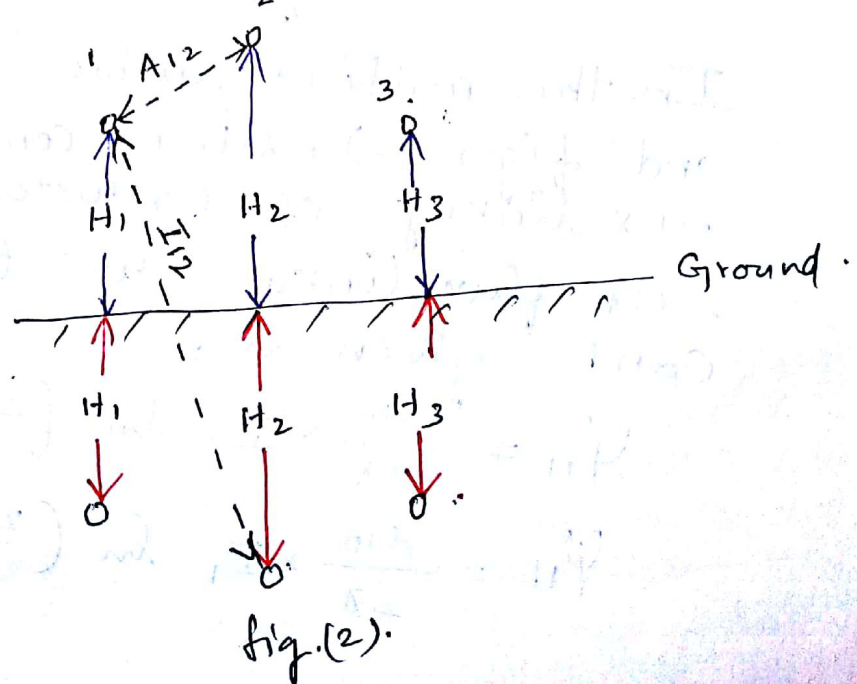 2
1
A12
3.
H1
H2
H3
I12
Ground.
H1
H2
H3
fig.(2).